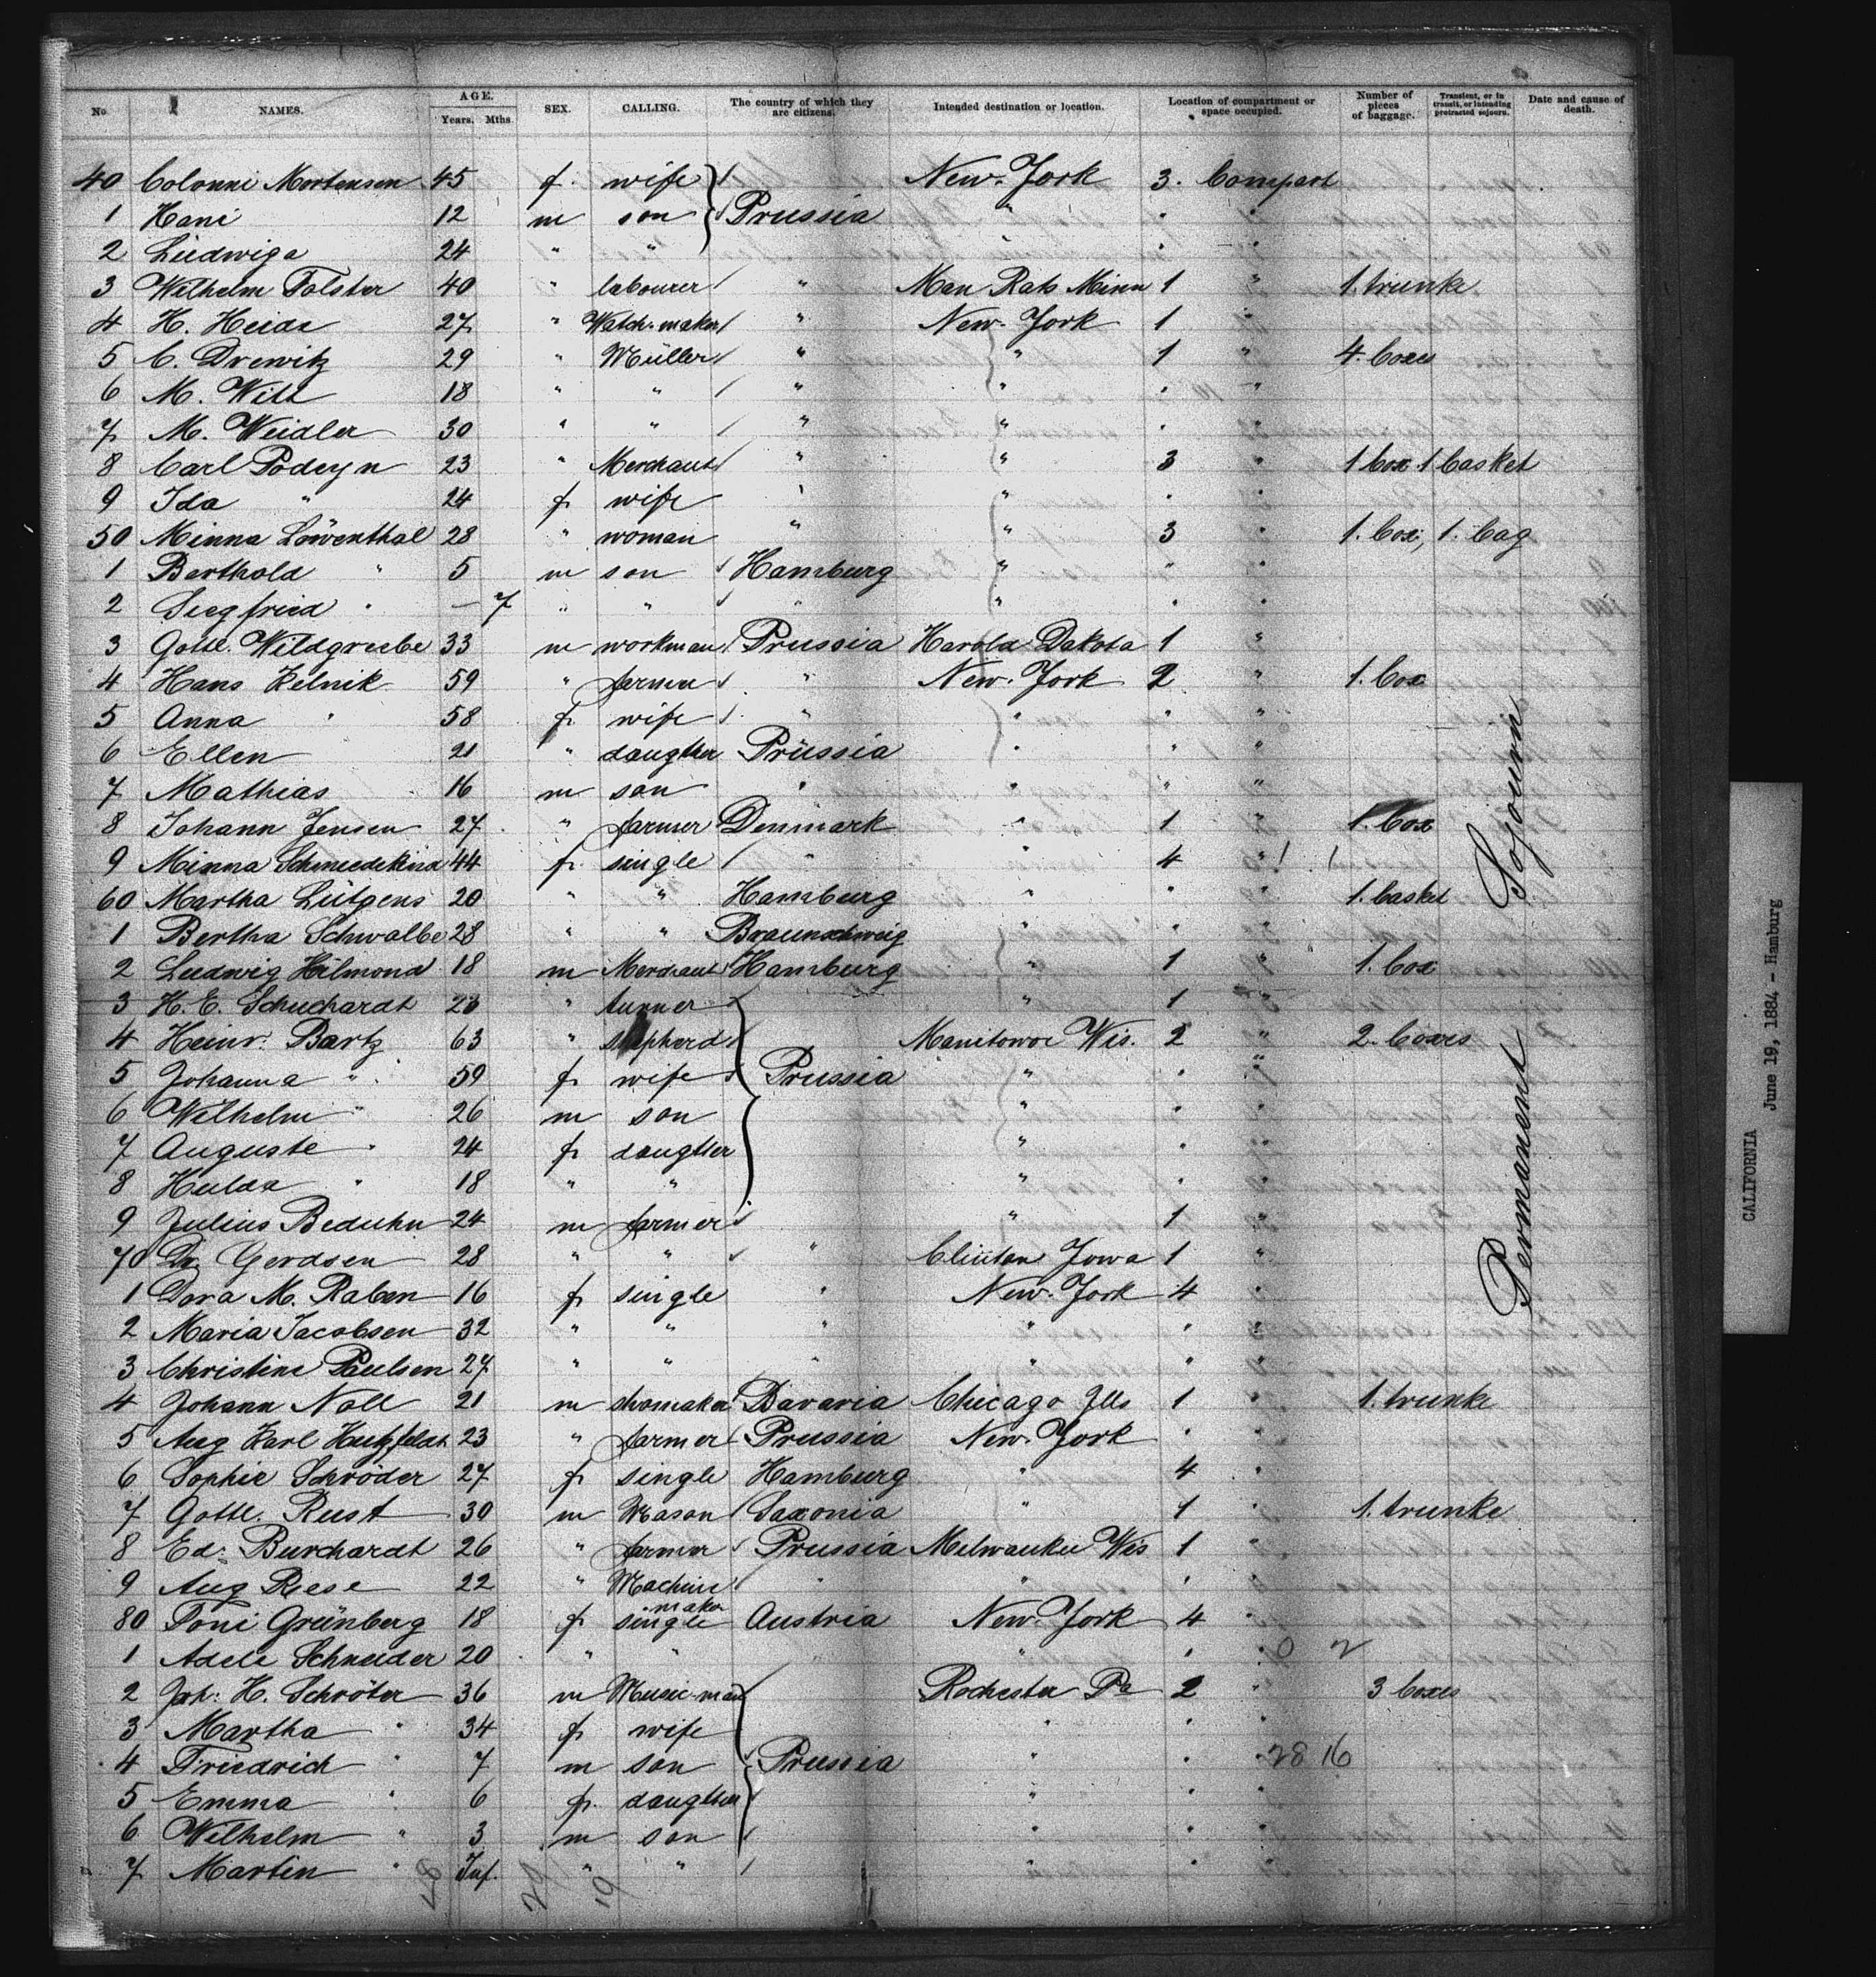 No NAMES. AGE. Years. Mths. SEX. CALLING. The country of which they are citizens. Intended destination or location. Location of compartment or space occupied. Number of pieces of baggage. Transient, or in transit, or intending protracted sojourn. Date and cause of death.
40 Colonni Mortensen 45 f. wife New-York 3. Compart
1 Hani 12 m son Prussia " " "
2 Ludwiga 24 " " " " "
3 Wilhelm Tolster 40 " labourer " Man Rato Minn 1 " 1. trunke
4 H. Heide 27 " Watch-maker " New-York 1 "
5 C. Drewitz 29 " Müller " " 1 " 4. boxes
6 M. Witt 18 " " " " " "
7 M. Weidler 30 " " " " " "
8 Carl Podeyn 23 " Merchant " " 3 " 1 box 1 basket
9 Ida " 24 f wife " " " "
50 Minna Löwenthal 28 " woman " " 3 " 1. box, 1. bag
1 Berthold " 5 m son Hamburg " " "
2 Siegfried " — 7 " " " " " "
3 Gottl. Wildgrube 33 m workman Prussia Harold Dakota 1 "
4 Hans Kelnik 59 " farmer " New-York 2 " 1. box
5 Anna " 58 f. wife " " " "
6 Ellen 21 " daugther Prüssia " " "
7 Mathias 16 m son " " " "
8 Johann Jensen 27 " farmer Denmark " 1 " 1. box
9 Minna Schmiedekind 44 f. single " " 4 "
60 Martha Lütgens 20 " " Hamburg " " " 1. basket
1 Bertha Schwalbe 28 " " Braunschweig " " "
2 Ludwig Hilmond 18 m Merchant Hamburg " 1 " 1. box
3 H. E. Schuchardt 23 " turner " 1 "
4 Heinr. Bartz 63 " shepherd Manitowoc Wis. 2 " 2. boxes
5 Johanna " 59 f wife Prussia " " "
6 Wilhelm " 26 m son " " "
7 Auguste " 24 f daugther " " "
8 Hulda " 18 " " " " "
9 Julius Beduhn 24 m farmer " 1 "
70 Dr. Gerdsen 28 " " " Clinton Jowa 1 "
1 Dora M. Raben 16 f single " New-York 4 "
2 Maria Jacobsen 32 " " " " " "
3 Christine Paulsen 27 " " " " " "
4 Johann Noll 21 m shomaker Bavaria Chicago Ills 1 " 1. trunke
5 Aug Karl Hutzfeldt 23 " farmer Prussia New-York " "
6 Sophie Schröder 27 f single Hamburg " 4 "
7 Gottl. Rust 30 m Mason Saxonia " 1 " 1. trunke
8 Ed. Burchardt 26 " farmer Prussia Milwaukee Wis 1 "
9 Aug Rese 22 " Machine maker " " " "
80 Toni Grünberg 18 f single Austria New-York 4 "
1 Adele Schneider 20 " " " " " " 0 2
2 Joh: H. Schröter 36 m Music-man Rochester Pa 2 " 3 boxes
3 Martha " 34 f wife " " "
4 Friedrich " 7 m son Prussia " " " 28 16
5 Emma " 6 f. daugther " " "
6 Wilhelm " 3 m son " " "
7 Martin " Inf. " " " " "
28 29 19
Permanent Sojourn
CALIFORNIA
June 19, 1884 - Hamburg